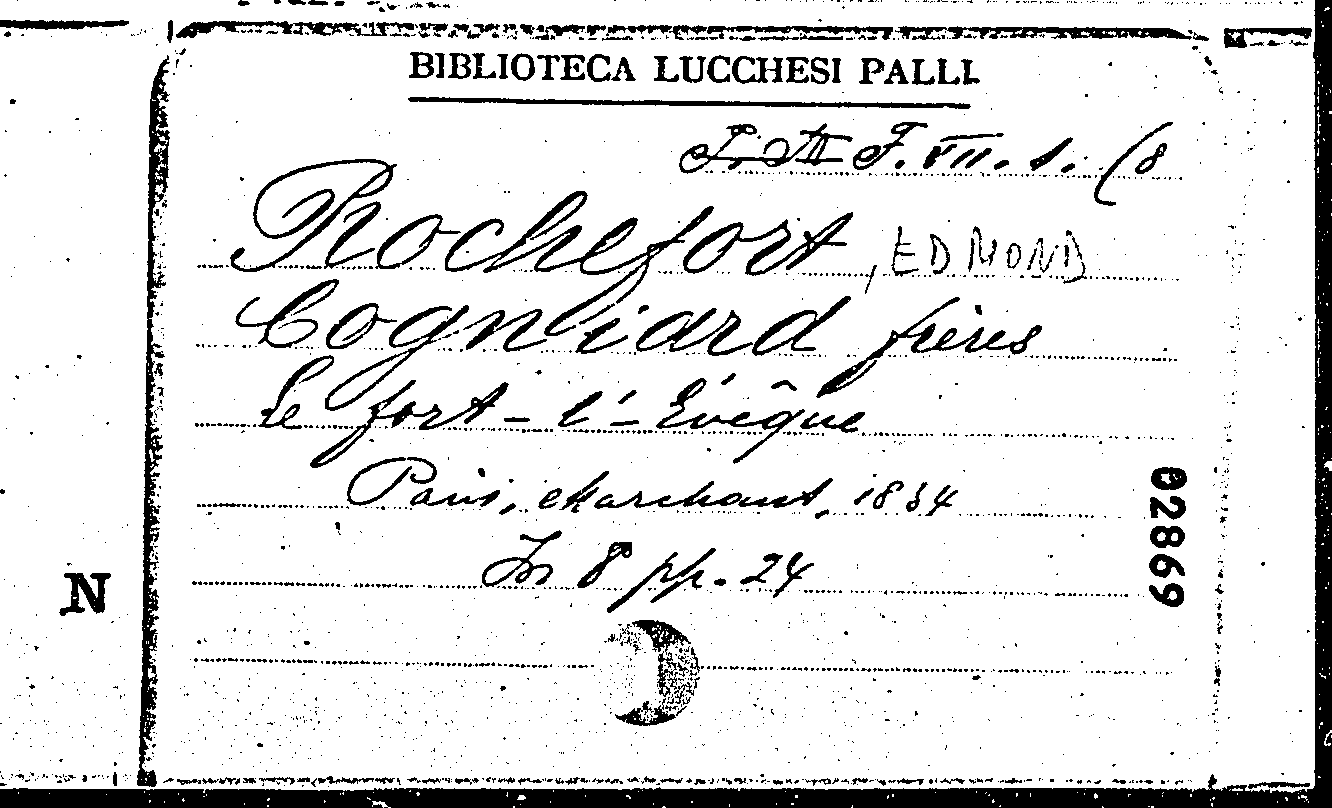 BIBLIOTECA LUCCHESI PALLI
F. VII. 1. (8
Rochefort, EDMOND
Cogniard frères
Le fort-l'-Évêque
Paris, Marchant, 1834
In 8° pp. 24
02869
N